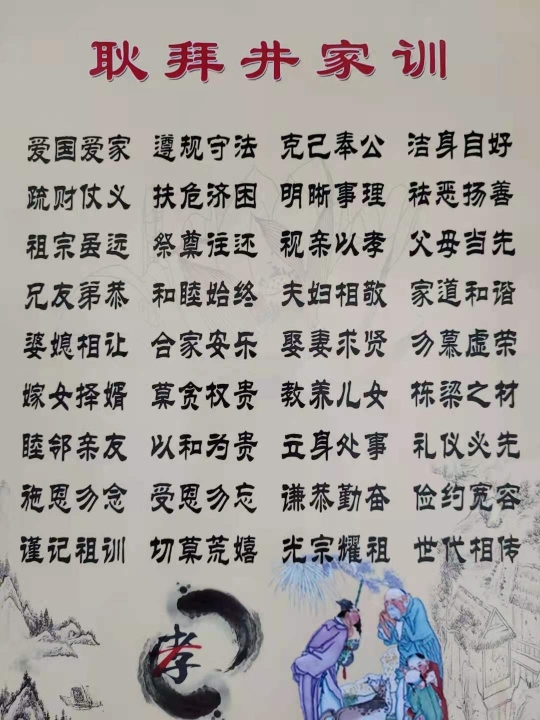 耿拜井家训
爱国爱家 遵规守法 克己奉公 洁身自好
疏财仗义 扶危济困 明晰事理 祛恶扬善
祖宗虽远 祭奠往还 视亲以孝 父母当先
兄友弟恭 和睦始终 夫妇相敬 家道和谐
婆媳相让 合家安乐 娶妻求贤 勿慕虚荣
嫁女择婿 莫贪权贵 教养儿女 栋梁之材
睦邻亲友 以和为贵 立身处事 礼仪必先
施恩勿念 受恩勿忘 谦恭勤奋 俭约宽容
谨记祖训 切莫荒嬉 光宗耀祖 世代相传
孝